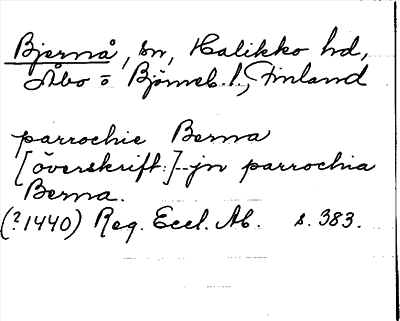 Bjernå, sn, Halikko hd,
Åbo o Björneb. l., Finland
parrochie Berna
[överskrift:] - jn parrochia
Berna.
(?1440) Reg. Eccl. Ab. s. 383.